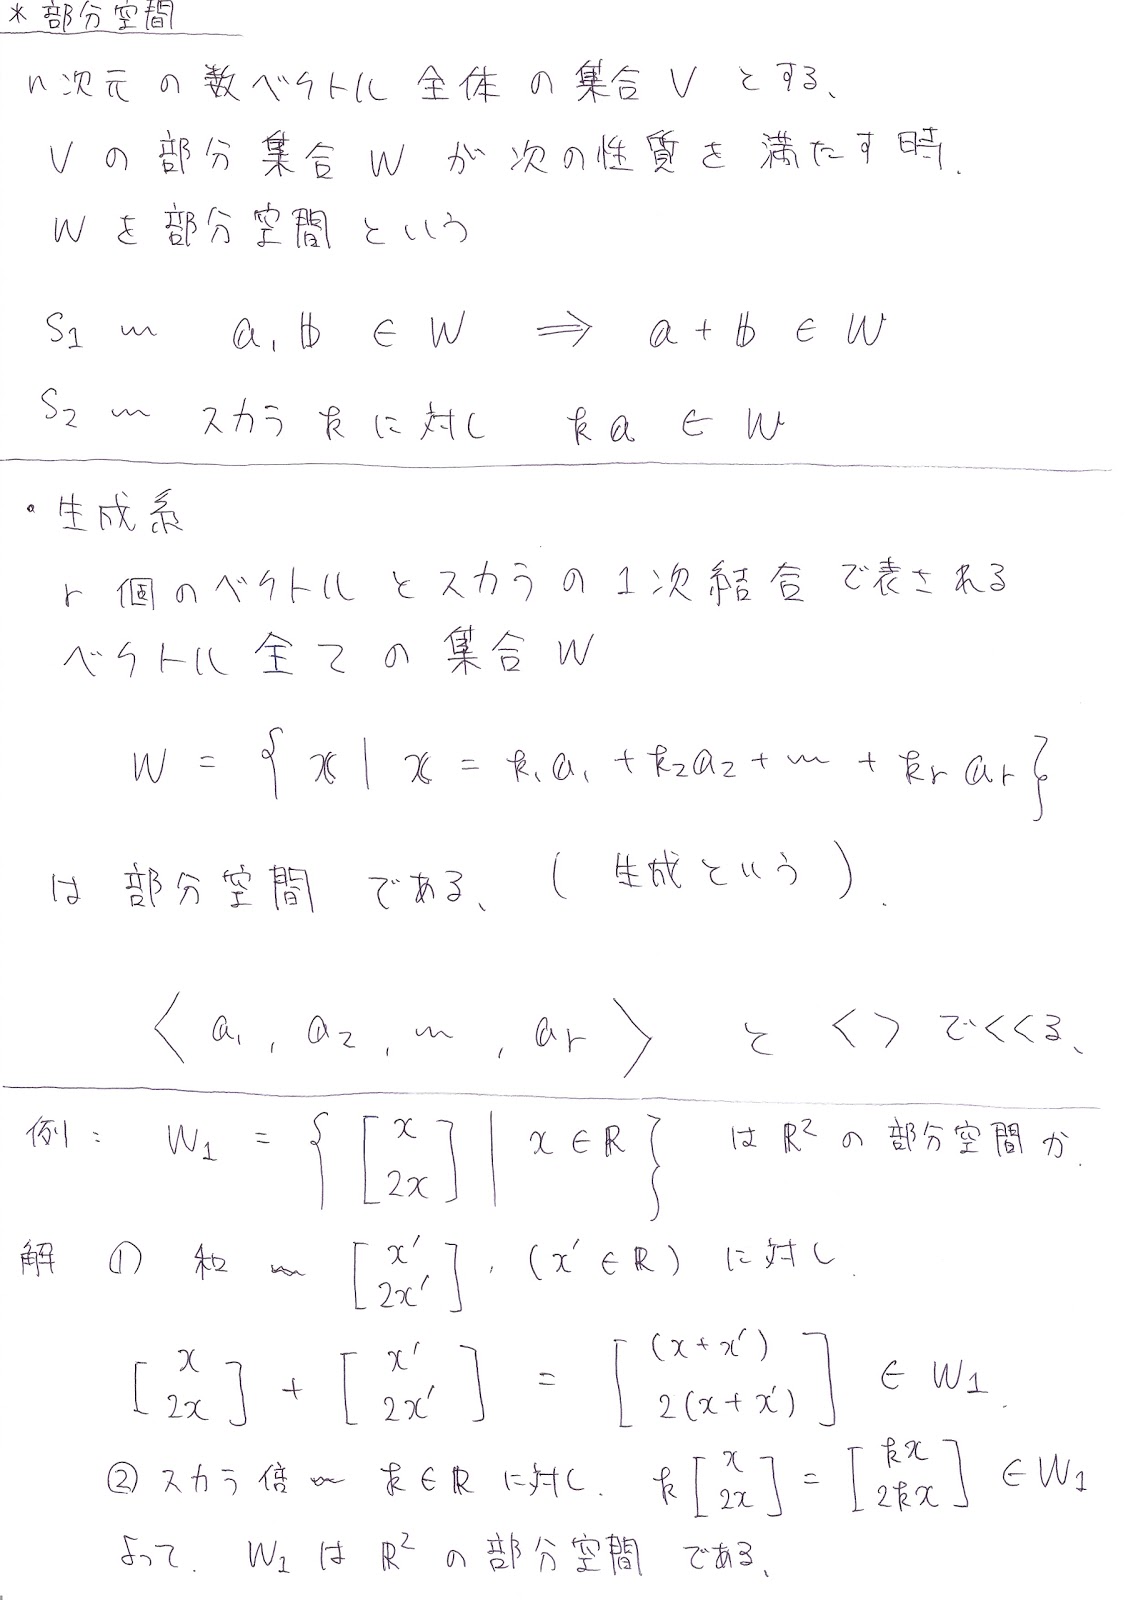 * 部分空間
n次元の数ベクトル 全体の集合 V とする、
V の部分集合 W が次の性質を満たす時、
W を部分空間という
S1 … a, b ∈ W ⇒ a + b ∈ W
S2 … スカラ k に対し k a ∈ W
・生成系
r 個のベクトルとスカラの1次結合で表される
ベクトル全ての集合 W
W = { x | x = k1 a1 + k2 a2 + … + kr ar }
は部分空間である、(生成という).
〈 a1, a2, …, ar 〉 と < > でくくる、
例: W1 = { [ x 2x ] | x ∈ R } は R² の部分空間か.
解 ① 和 … [ x′ 2x′ ], (x′ ∈ R) に対し.
[ x 2x ] + [ x′ 2x′ ] = [ (x + x′) 2(x + x′) ] ∈ W1.
② スカラ倍 … k ∈ R に対し. k [ x 2x ] = [ kx 2kx ] ∈ W1
よって. W1 は R² の部分空間である、